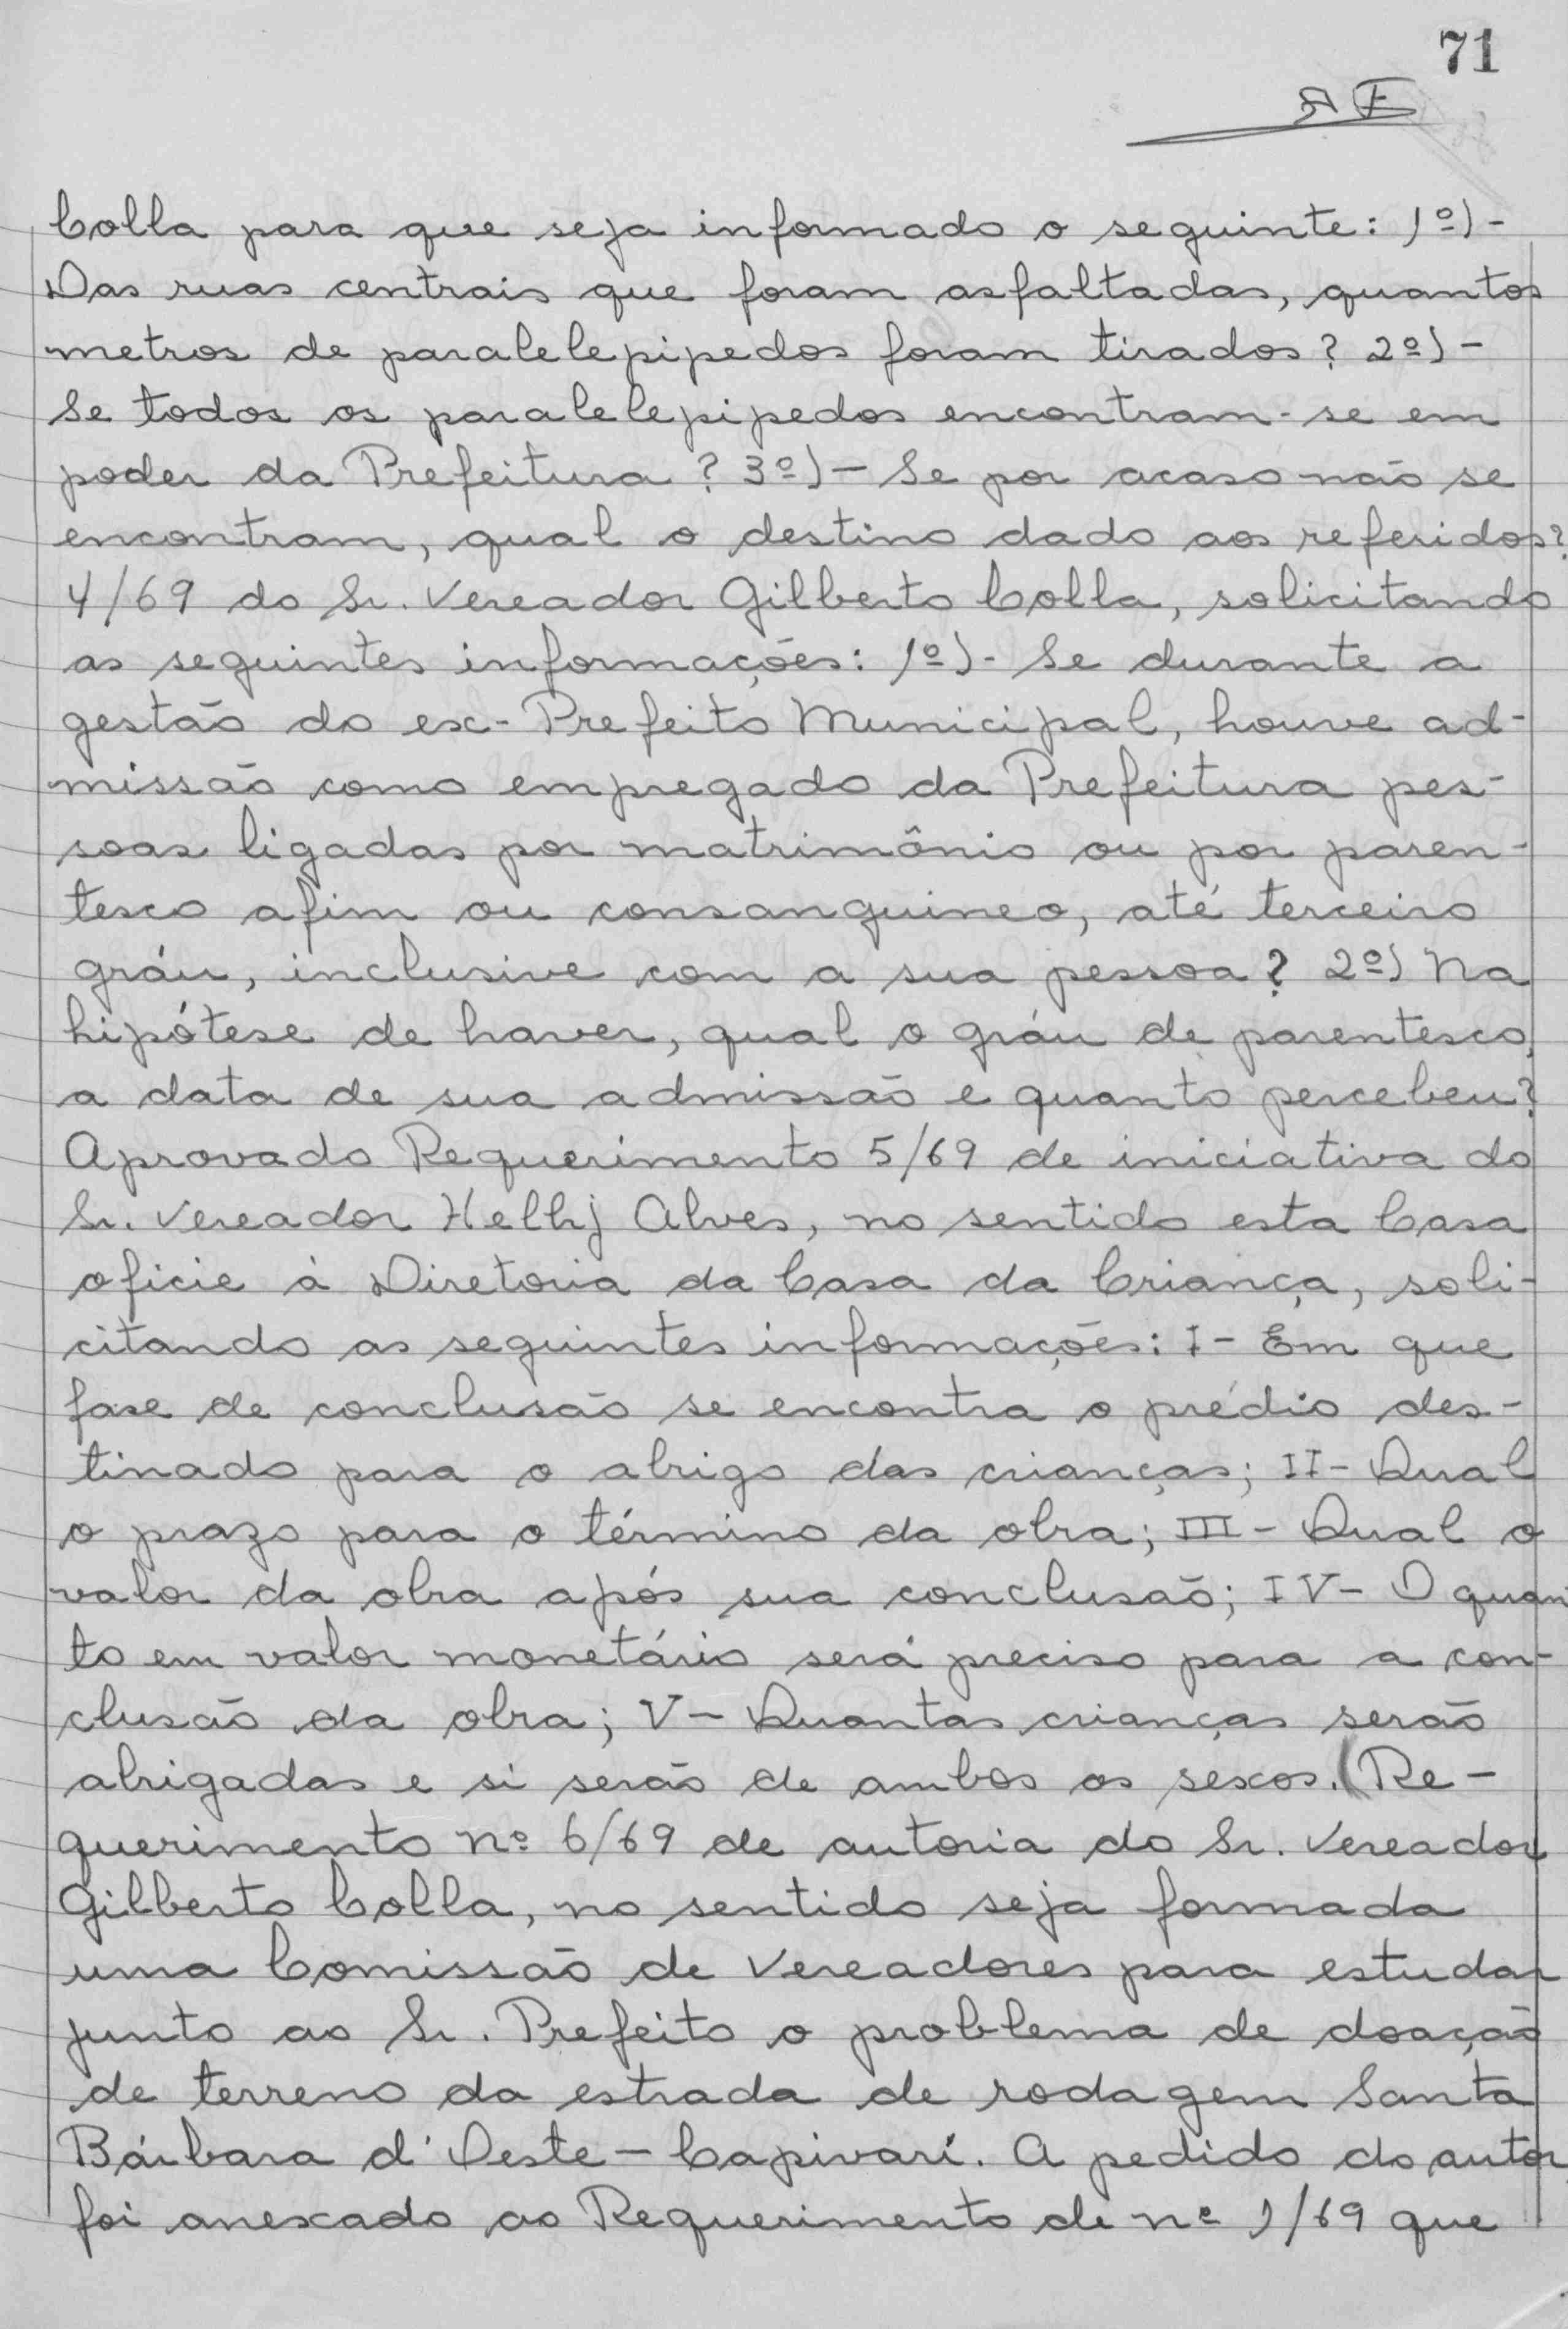 71
AF
Colla para que seja informado o seguinte: 1º)-
Das ruas centrais que foram asfaltadas, quantos
metros de paralelepipedos foram tirados? 2º)-
Se todos os paralelepipedos encontram-se em
poder da Prefeitura? 3º)- Se por acaso não se
encontram, qual o destino dado aos referidos?
4/69 do Sr. Vereador Gilberto Colla, solicitando
as seguintes informações: 1º)- Se durante a
gestão do ex-Prefeito Municipal, houve ad-
missão como empregado da Prefeitura pes-
soas ligadas por matrimônio ou por paren-
tesco afim ou consanguineo, até terceiro
gráu, inclusive com a sua pessoa? 2º) Na
hipótese de haver, qual o gráu de parentesco,
a data de sua admissão e quanto percebeu?
Aprovado Requerimento 5/69 de iniciativa do
Sr. Vereador Helhj Alves, no sentido esta Casa
oficie à Diretoria da Casa da Criança, soli-
citando as seguintes informações: I- Em que
fase de conclusão se encontra o prédio des-
tinado para o abrigo das crianças; II- Qual
o prazo para o término da obra; III- Qual o
valor da obra após sua conclusão; IV- O quan
to em valor monetário será preciso para a con-
clusão da obra; V- Quantas crianças serão
abrigadas e si serão de ambos os sexos. (Re-
querimento nº 6/69 de autoria do Sr. Vereador
Gilberto Colla, no sentido seja formada
uma Comissão de Vereadores para estudar
junto ao Sr. Prefeito o problema de doação
de terreno da estrada de rodagem Santa
Bárbara d'Oeste - Capivarí. A pedido do autor
foi anexado ao Requerimento de nº 1/69 que